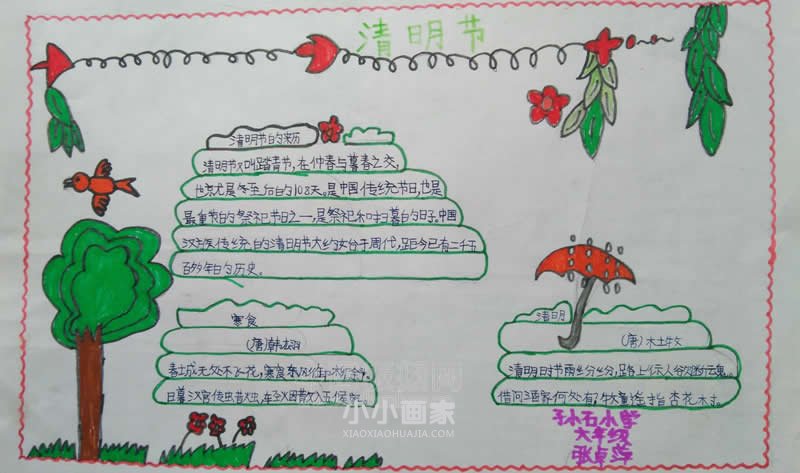 清明节
清明节的来历
清明节又叫踏青节,在仲春与暮春之交,
也就是冬至后的108天。是中国传统节日,也是
最重要的祭祀节日之一,是祭祀和扫墓的日子。中国
汉族传统的清明节大约始于周代,距今已有二千五
百多年的历史。
寒食
(唐)韩翃
春城无处不飞花,寒食东风
日暮汉宫传蜡烛,轻烟散入五侯家。
清明
(唐)杜牧
清明时节雨纷纷,路上行人欲断魂。
借问酒家何处有牧童遥指杏花村。
小石小学
六年级
张卓
小小画家
XIAOXIAOHUAJIA.COM